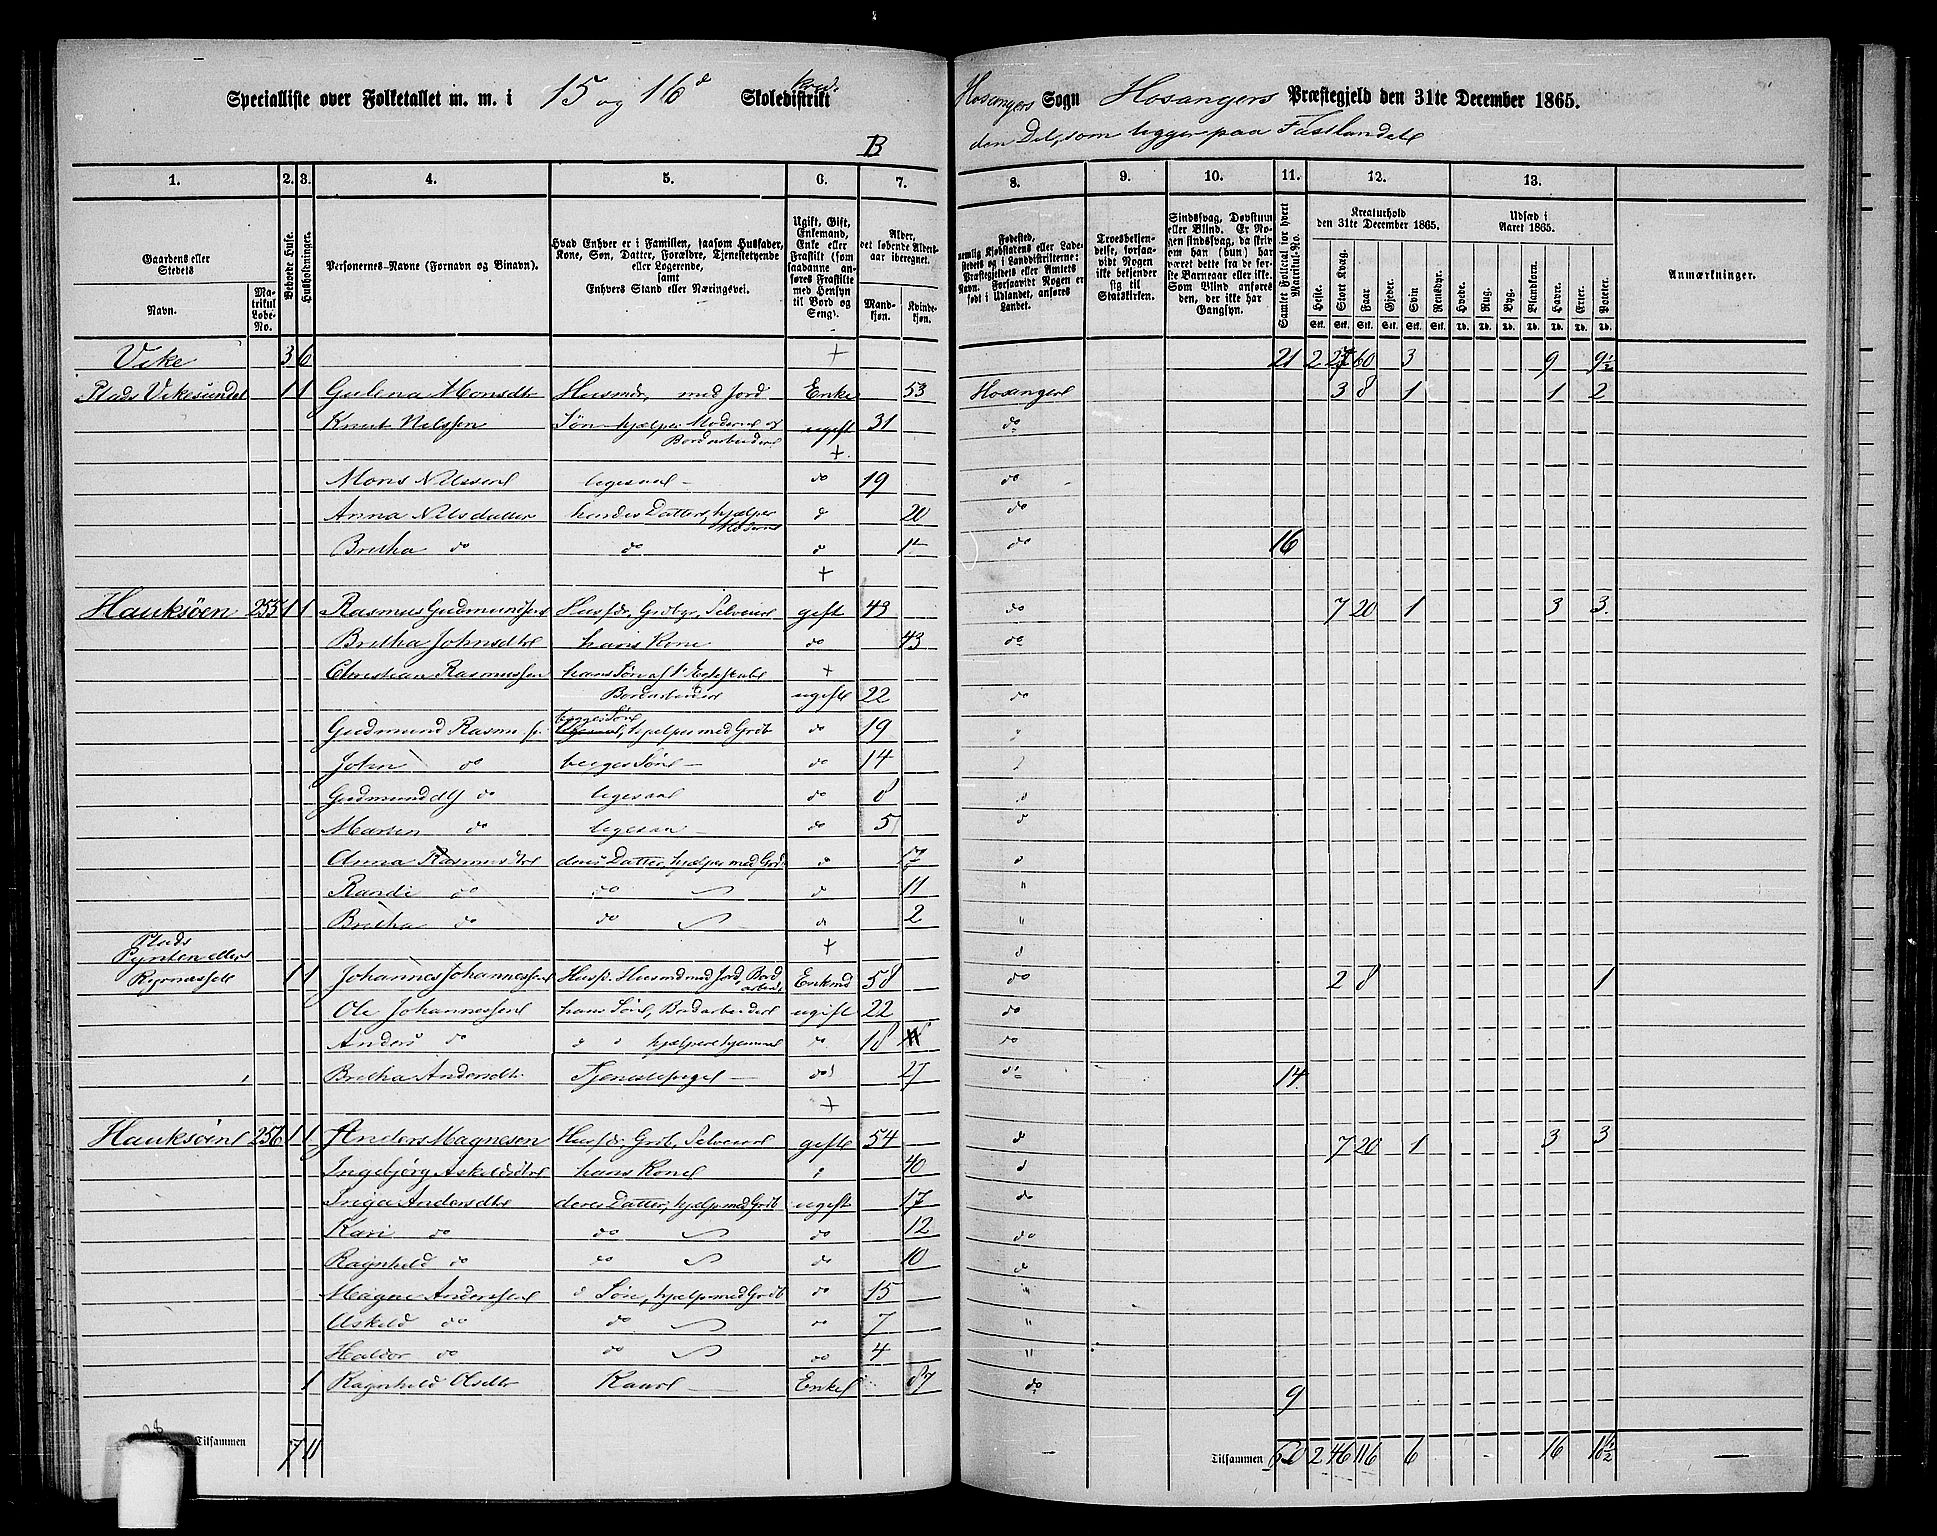 Specialliste over Folketallet m. m. i 15 og 16d Skoledistrikt
B
Hosangers Sogn Hosangers Præstegjeld den 31te December 1865.
den Del, som ligger paa Fastlandet
1. 2. 3. 4. 5. 6. 7. 8. 9. 10. 11. 12. 13.
Gaardens eller Stedets
Navn. Matrikul Løbe-No.
Beboede Huse.
Husholdninger.
Personernes-Navne (Fornavn og Binavn).
Hvad Enhver er i Familien, saasom Husfader, Kone, Søn, Datter, Forældre, Tjenestetyende eller Logerende, samt Enhvers Stand eller Næringsvei.
Ugift, Gift, Enkemand, Enke eller Fraskilt (som saadanne anføres Fraskilte med Hensyn til Bord og Seng).
Alder, det løbende Aldersaar iberegnet.
Mandkjøn. Kvindekjøn.
Fødested, nemlig Kjøbstadens eller Ladestedets eller i Landdistrikterne: Præstegjeldets eller Amtets Navn. Forsaavidt Nogen er født i Udlandet, anføres Landet.
Troesbekjendelse, forsaavidt Nogen ikke bekjender sig til Statskirken.
Sindssvag, Døvstum eller Blind. Er Nogen sindssvag, da skrives om han (hun) har været dette fra de første Barneaar eller ikke. Som Blind anføres den, der ikke har Gangsyn.
Samlet Folketal for hvert Matrikul-No.
Kreaturhold den 31te December 1865.
Heste. Stort Kvæg. Faar. Gjeder. Svin. Rensdyr.
Udsæd i Aaret 1865.
Hvede. Rug. Byg. Blandkorn. Havre. Erter. Poteter.
Anmærkninger.
Vike 3 6 + 21 2 27 60 3 9 9 1/2
Plads Vikesundet 1 1 Gulena Monsdtr Husmdr, med Jord Enke 53 Hosanger 3 8 1 1 2
Knut Nilssen Søn hjælper Moderen og Bordarbeider ugift 31 do
+
Mons Nilssen ligesaa do 19 do
Anna Nilsdatter hendes Datter, hjælper Moderen do 20 do
Britha do do do do 16
+
Hauksøen 255 1 1 Rasmus Gudmundsen Husfdr, Grdbr, Selveier gift 43 do 7 20 1 3 3
Britha Johnsdtr hans Kone do 43 do
Christian Rasmussen hans Søn af 1ste Egteskab +
Bordarbeider ugift 22 do
Gudmund Rasmussen begges Søn, hjælper med Grdb do 19
John do begges Søn do 14
Gudmund do ligesaa do 8
do ligesaa do 5
Anna Rasmusdtr deres Datter, hjælper med Grdb 17
Randi do do 11
Britha do do 2
Plads Pynten eller +
1 1 Johannes Johannessen Husf. Husmd med Jord, Bordarbeid. Enkmd 58 do 2 8 1
Ole Johannessen hans Søn, Bordarbeider ugift 22 do
Anders do hjælper hjemme do 18 do
Britha Andersdtr Tjenestepige do 27 do 14
+
Hauksøen 256 1 1 Anders Magnesen Husfdr, Grdb, Selveier gift 54 7 20 1 3 3
Ingebjørg Askeldsdtr hans Kone 40
Andersdtr deres Datter, hjælper med Grdb ugift 17 do
Kari do do do 12 do
Ragnhild do do do 10
Magne Andersen Søn, hjælper med Grdb do 15
Askild do do do 7
Haldor do do do 4
1 Ragnhild Olsdtr Enke 87 do 9
Tilsammen 7 11 Tilsammen 60 2 46 116 6 16 18 1/2